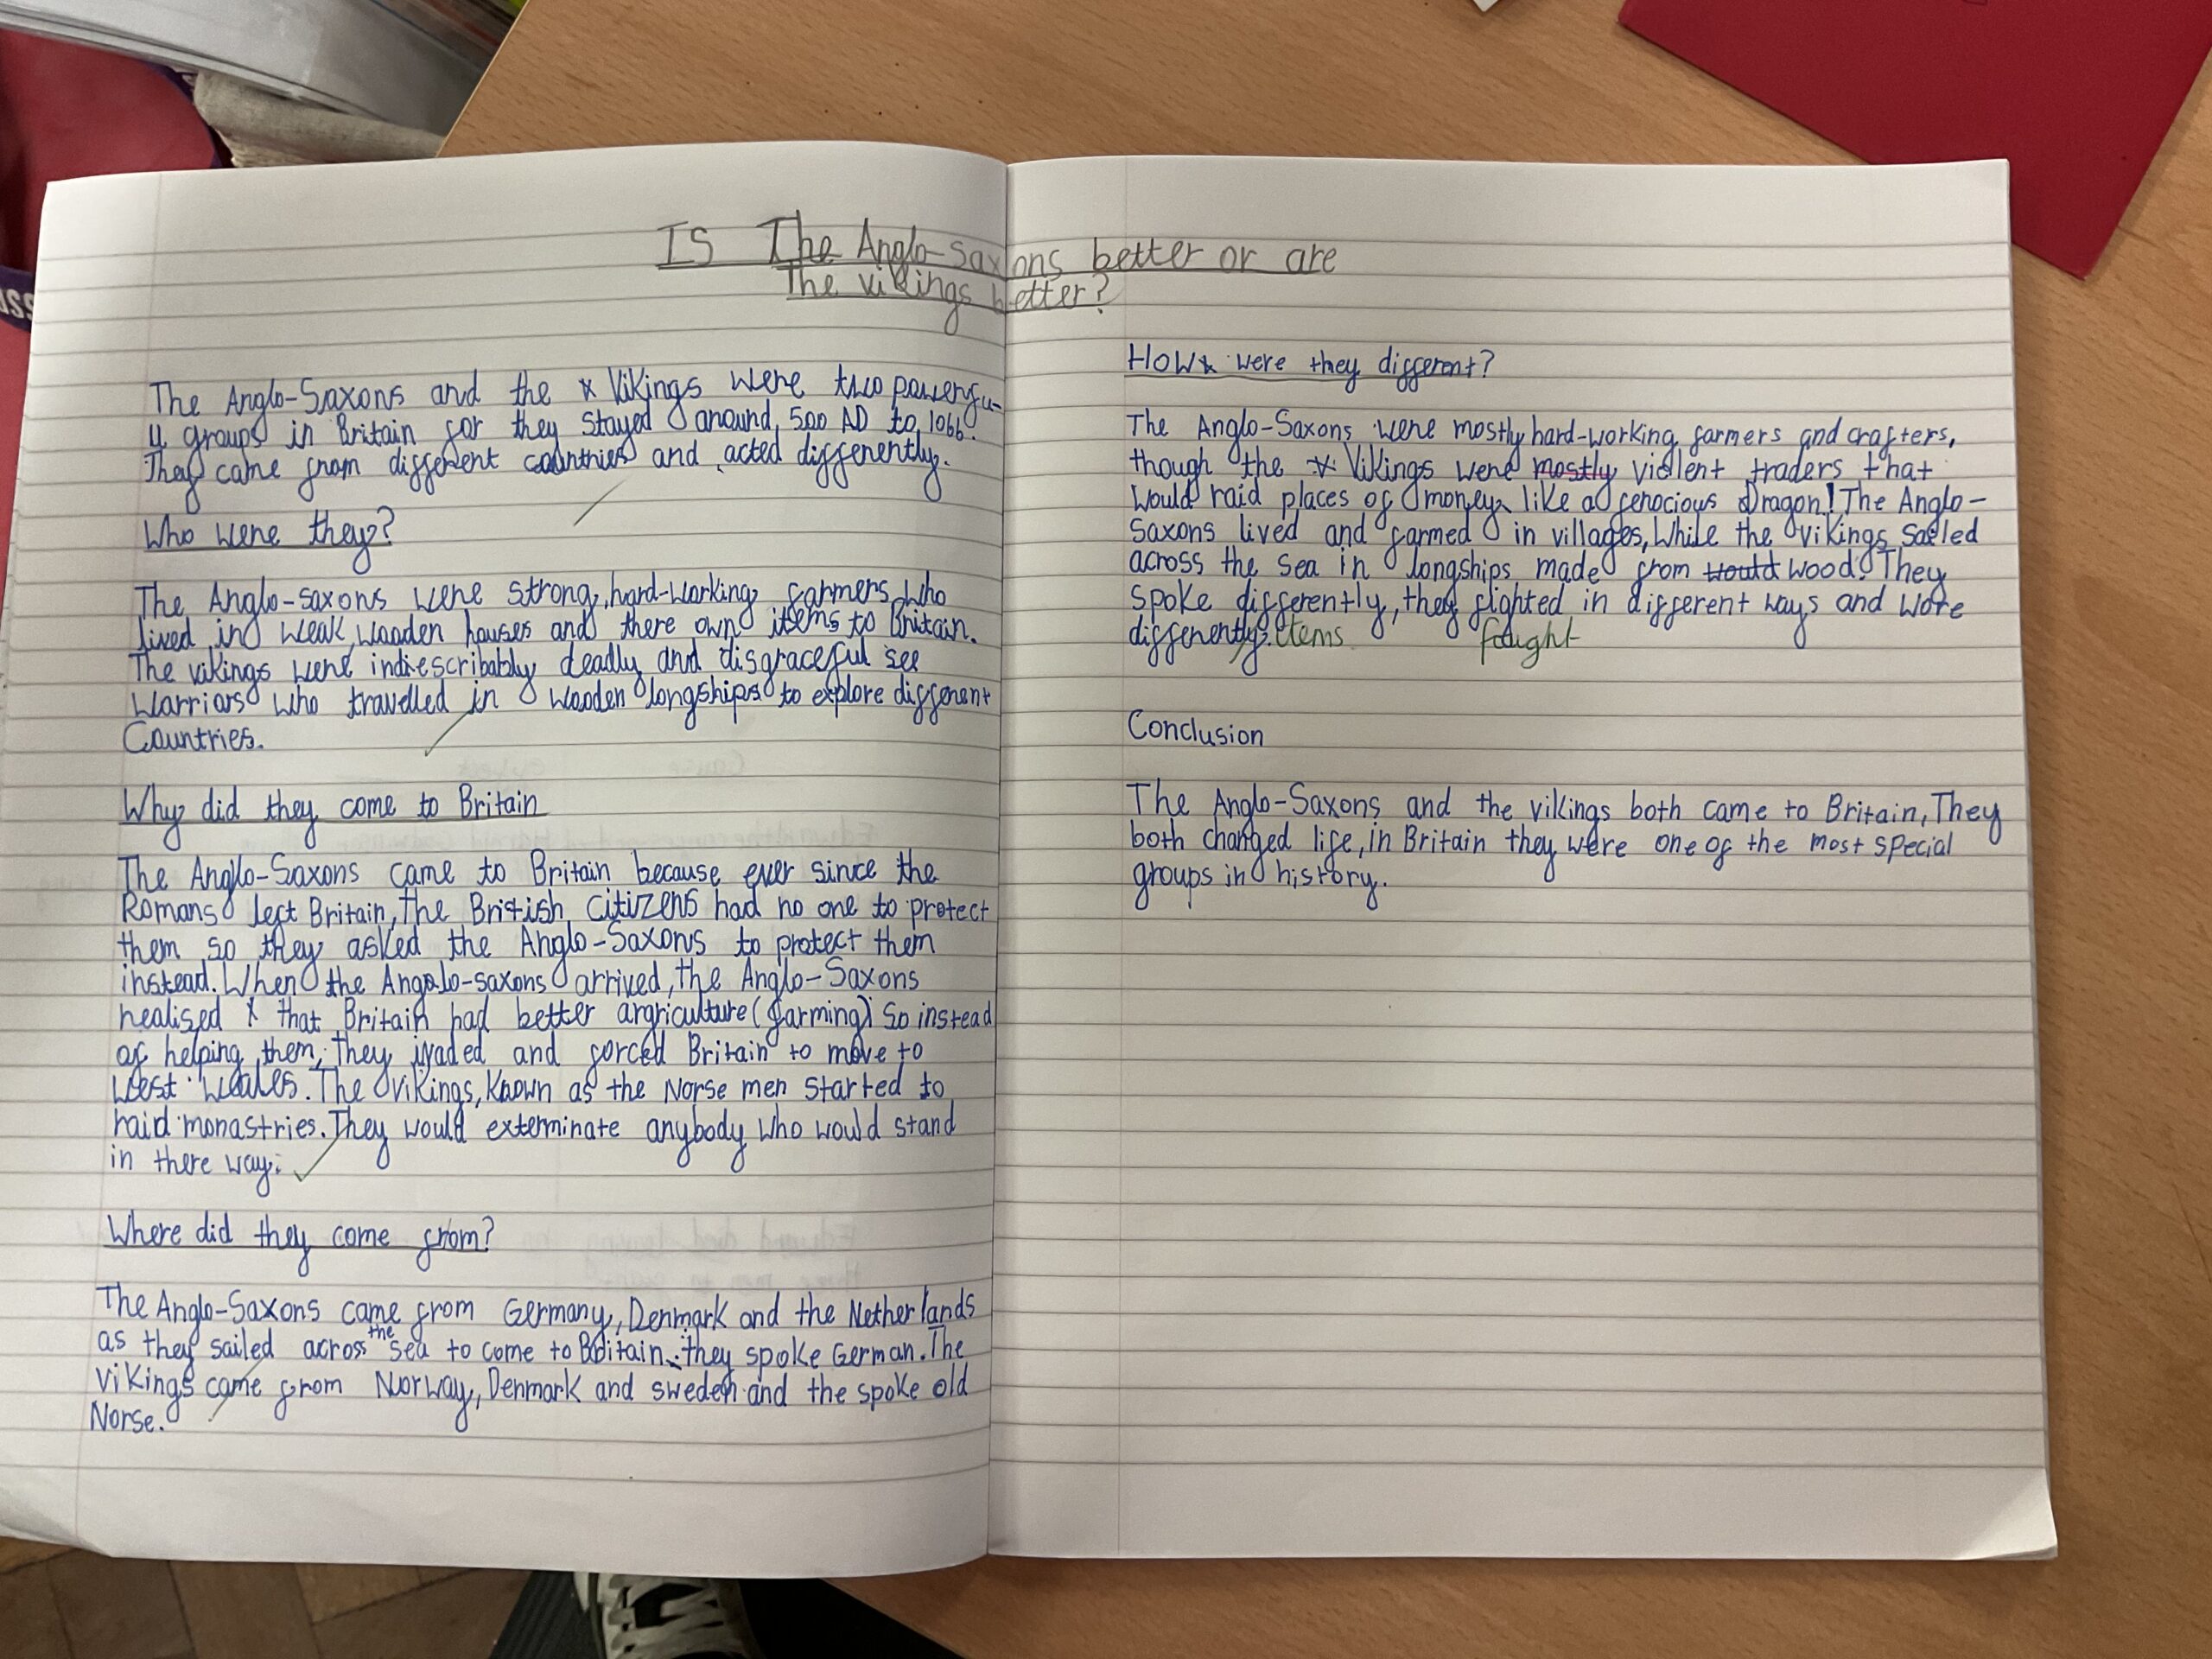 Is The Anglo-Saxons better or are
The vikings better?
The Anglo-Saxons and the Vikings were two powerfu-
ll groups in Britain for they stayed around 500 AD to 1066.
They came from different countries and acted differently.
Who were they?
The Anglo-saxons were strong, hard-working farmers who
lived in weak, wooden houses and there own items to Britain.
The vikings were indiescribably deadly and disgraceful see
warriors who travelled in wooden longships to explore different
Countries.
Why did they come to Britain
The Anglo-Saxons came to Britain because ever since the
Romans left Britain, the British citizens had no one to protect
them so they asked the Anglo-Saxons to protect them
instead. When the Anglo-saxons arrived, the Anglo-Saxons
realised that Britain had better argriculture (farming) So instead
of helping them, they ivaded and forced Britain to move to
West Wales. The vikings, known as the Norse men started to
raid monastries. They would exterminate anybody who would stand
in there way.
Where did they come from?
The Anglo-Saxons came from Germany, Denmark and the Netherlands
as they sailed across the sea to come to Britain, they spoke German. The
vikings came from Norway, Denmark and sweden and the spoke old
Norse.
How were they different?
The Anglo-Saxons were mostly hard-working farmers and crafters,
though the Vikings were mostly violent traders that
would raid places of money like a ferocious Dragon! The Anglo-
Saxons lived and farmed in villages, While the vikings sailed
across the sea in longships made from would wood. They
spoke differently, they fighted in different ways and wore
differently. items fought
Conclusion
The Anglo-Saxons and the vikings both came to Britain, They
both changed life, in Britain they were one of the most special
groups in history.